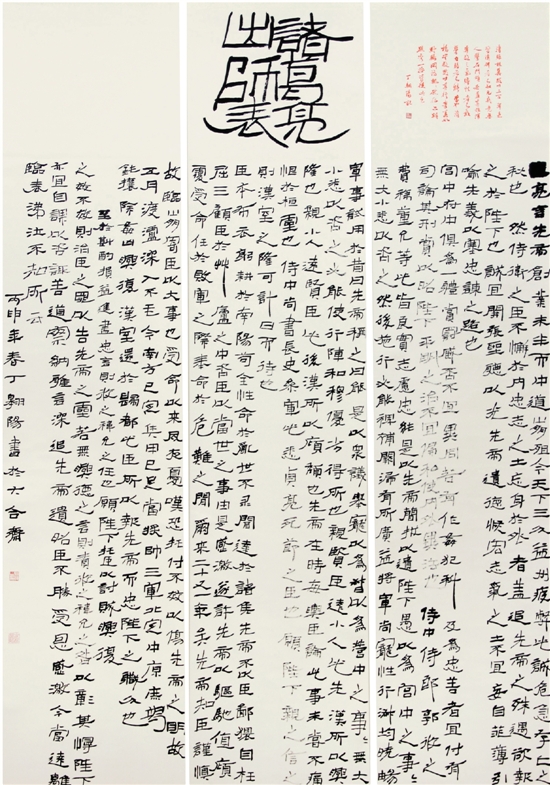 諸葛亮
出師表
亮言先帝創業未半而中道崩殂今天下三分益州疲弊此誠危急存亡之
秋也然侍衛之臣不懈於內忠志之士忘身於外者蓋追先帝之殊遇欲報
之於陛下也誠宜開張聖聽以光先帝遺德恢宏志士之氣不宜妄自菲薄引
喻失義以塞忠諫之路也
宮中府中俱為一體陟罰臧否不宜異同若有作姦犯科及為忠善者宜付有
司論其刑賞以昭陛下平明之治不宜偏私使內外異法也侍中侍郎郭攸之
費禕董允等此皆良實志慮忠純是以先帝簡拔以遺陛下愚以為宮中之事事
無大小悉以咨之然後施行必能裨補闕漏有所廣益將軍向寵性行淑均曉暢
軍事試用於昔日先帝稱之曰能是以眾議舉寵以為督以為營中之事事無大
小悉以咨之必能使行陣和穆優劣得所也親賢臣遠小人此先漢所以興
隆也親小人遠賢臣此後漢所以傾頹也先帝在時每與臣論此事未嘗不痛
恨於桓靈也侍中尚書長史參軍此悉貞亮死節之臣也願陛下親之信之
則漢室之隆可計日而待也
臣本布衣躬耕於南陽苟全性命於亂世不求聞達於諸侯先帝不以臣鄙猥自枉
屈三顧臣於草廬之中咨臣以當世之事由是感激遂許先帝以驅馳值傾
覆受命任於敗軍之際奉命於危難之間爾來二十又一年矣先帝知臣謹慎
故臨崩寄臣以大事也受命以來夙夜憂嘆恐托付不效以傷先帝之明故
五月渡瀘深入不毛今南方已定兵甲已足當獎帥三軍北定中原庶竭
鈍攘除姦凶興復漢室還於舊都此臣所以報先帝而忠陛下之職分也
至於斟酌損益進盡忠言則攸之禕允之任也願陛下托臣以討賊興復
之效不效則治臣之罪以告先帝之靈若無興德之言則責攸之禕允之咎以彰其慢陛下
亦宜自謀以咨諏善道察納雅言深追先帝遺詔臣不勝受恩感激今當遠離
臨表涕泣不知所云
丙申年春丁翱陽書於六合齋